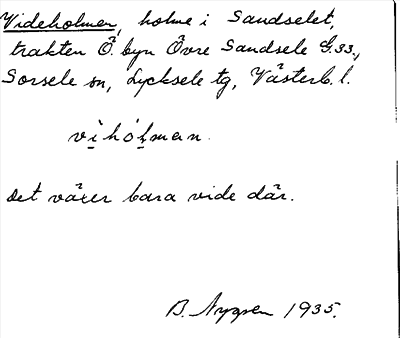 Videholmen, holme i Sandselet,
trakten Ö. byn Övre Sandsele G.33.,
Sorsele sn, Lycksele tg, Västerb. l.
vi̠hó̠l̠man.
Det växer bara vide där.
B. Nygren 1935.